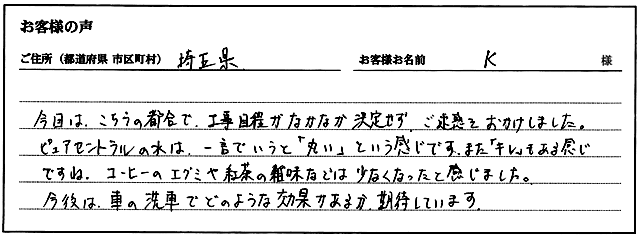 お客様の声
ご住所（都道府県 市区町村） 埼玉県 お客様お名前 K 様
今日は、こちらの都合で、工事日程がなかなか決定せず、ご迷惑をおかけしました。
ピュアセントラルの水は、一言でいうと「丸い」という感じです。また「キレ」もある感じ
ですね。コーヒーのエグミや紅茶の雑味などは少なくなったと感じました。
今後は、車の洗車でどのような効果があるか、期待しています。